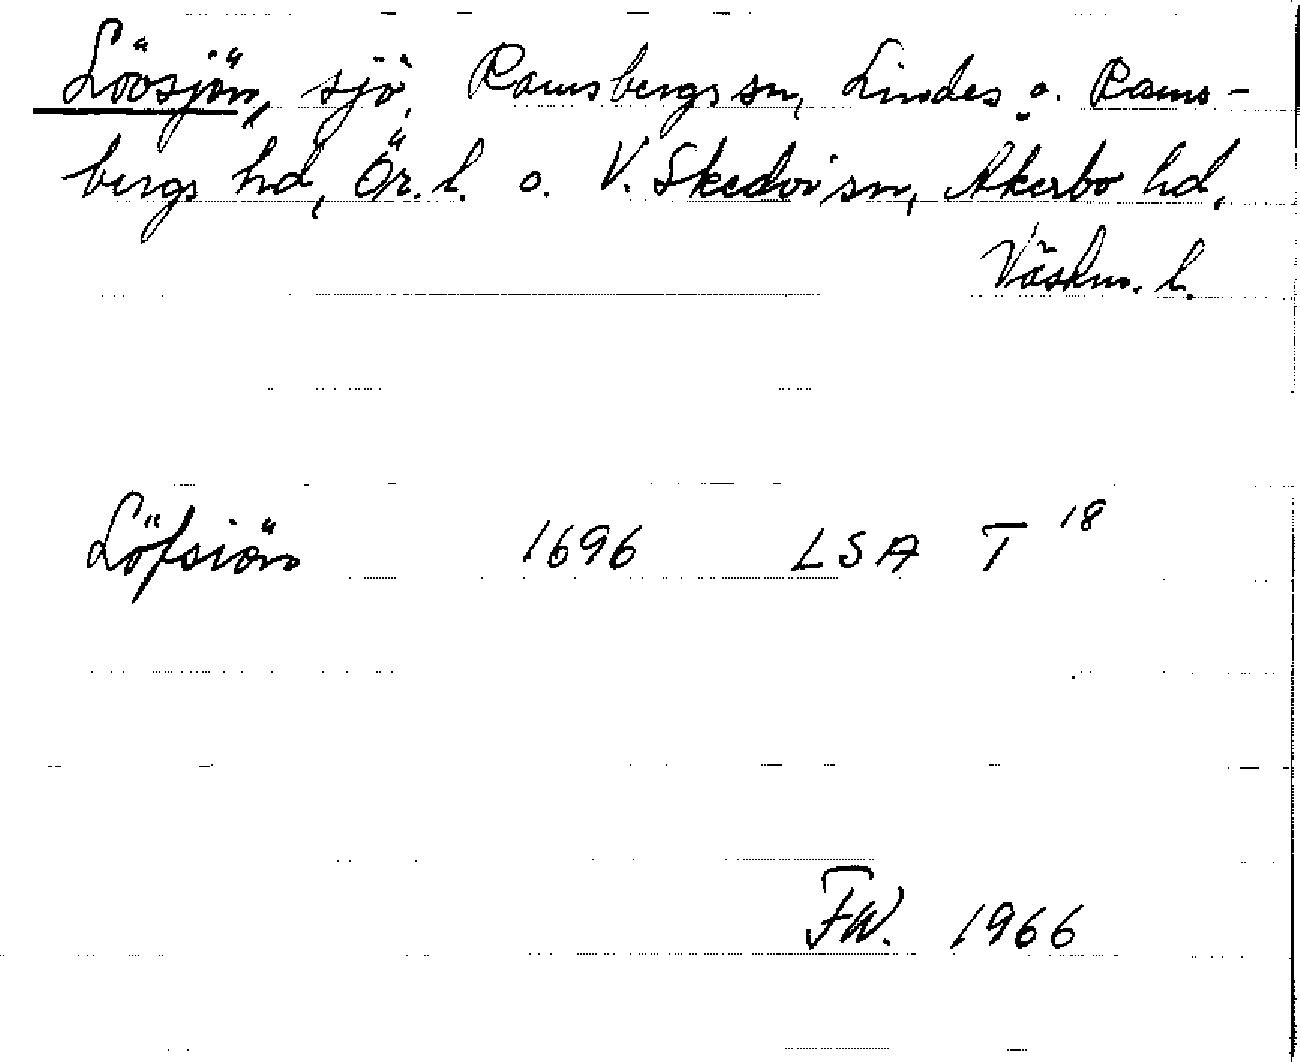 Lövsjön, sjö, Ramsbergs sn, Lindes o. Rams-
bergs hd, Ör. l. o. V. Skedvi sn, Åkerbo hd,
Västm. l.
Löfsiön 1696 LSA T 18
FW. 1966